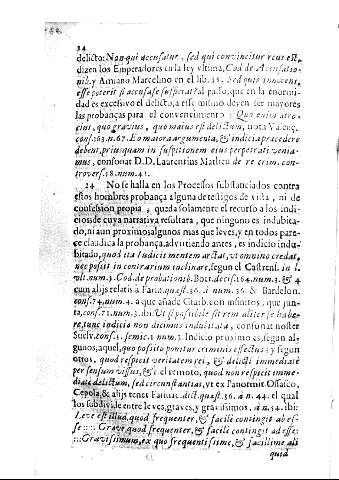 24
delicto: Non qui accusatur, sed qui convincitur reus est,
dizen los Emperadores en la ley vltima, Cod de Accusatio-
nib. y Amiano Marcelino en el lib. 18. Sed quis innocens
esse poterit si accusasse sufficiat? al passo, que en la enormi-
dad es excessivo el delicto, a esse mismo deven ser mayores
las probanças pira el convencimento: Quo enim atro-
cius, quo gravius, quo maius est delictum, nota Valenç.
cons. 163. n. 67. Eo maiora argumenta, & indicia pracedere
debent, priusquam in suspitionem eius perpetrati venia-
mus, consonat D. D. Laurentius Matheu de re crim. con-
trovers. 18. num. 41.
24 No se halla en los Processos substanciados contra
estos hombres probança alguna de testigos de vista, ni de
confession propia, queda solamente el recurso a los indi-
cios de cuya narrativa resultara, que ninguno es indubita-
do, ni aun proximo, algunos mas que leves, y en todos pare-
ce claudica la probança, advirtiendo antes, es indicio indu-
bitado, quod ita Iudicis mentem arctat, vt omnino credat,
nec possit in contrarium inclinare, segun el Castrens. in l.
vlt. num. 3. Cod. de probationib. Boct. decis. 164. num. 3. & 4
cum alijs relatis à Farin. quæst. 36. à num. 36. & Bardelon.
cons. 74. num. 4. a que añade Giurb. con infinitos, que jun-
ta, cons. 73. num. 3. ibi: Vt si possibile sit rem aliter se habe-
re, tunc indicio non dicimus indubitata, consonat noster
Suelv. cons. 5. semic. 1 num. 3. Indicio proximo es, segun al-
gunos, aquel, quo posito ponitur criminis effectus; y segun
otros, quod respicit veritatem rei, & delicti immediatè
per sensum vissus, & c. el remoto, quod non respicit imme-
diatè delictum, sed circunstantias, vt ex Panormit. Offasco,
Cepola, & alijs tenet Farinac. dict. quæst. 36. à n. 44. el qual
los subdivide entre leves, graves, y gravissimos, à n. 54. ibi:
Leve est illud, quod frequenter, & facili contingit ab es-
se ::::: Grave, quod frequenter, & facili contingit adesse:
:::: Gravissimum, ex quo frequentissimè, & facillimè ali
quid